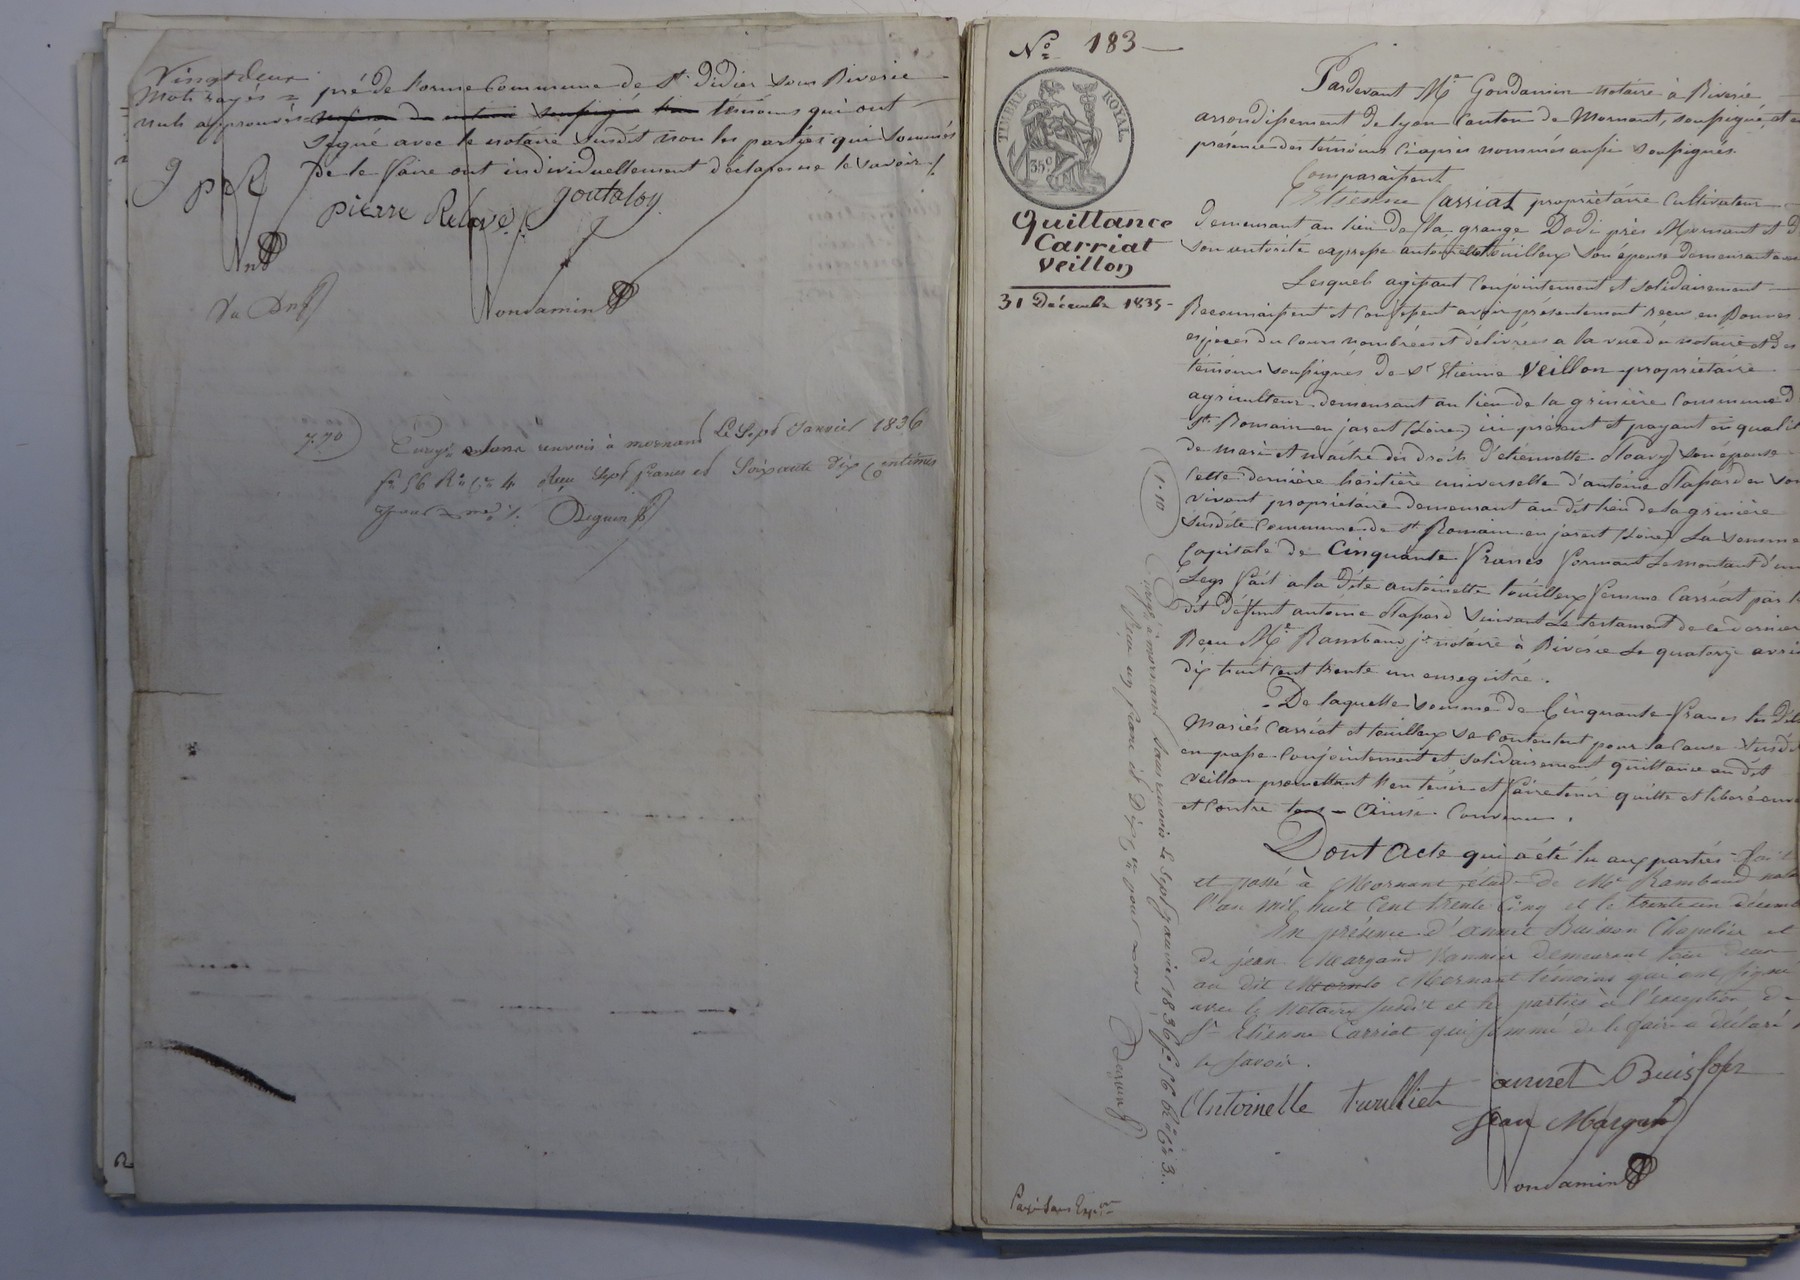 Vingt deux
mots rayés
nuls approuvés
pré de l'orme Commune de St Didier sous Riverie
témoins qui ont
signé avec le notaire susdit non les parties qui sommés
de le faire ont individuellement déclaré ne le savoir
Pierre Relave
goutaloy
Gondamin
7.70
Enrgé sans renvois à mornant Le Sept Janvier 1836
fo 56 Ro Ce 4 Reçu Sept francs et Soixante dix Centimes
Deguin
No 183
TIMBRE ROYAL
35c
Quittance
Carriat
Veillon
31 Décembre 1835
Pardevant Me Gondamin notaire à Riverie
arrondissement de Lyon Canton de Mornant, soussigné, et en
présence des témoins ci après nommés aussi soussignés
Comparaissent
Etienne Carriat propriétaire Cultivateur
demeurant au lieu de la grange Dodi près Mornant et de
son autorité expresse antoinette touilleux son épouse demeurant avec
Lesquels agissant Conjointement et solidairement
Reconnaissent et Confessent avoir présentement reçu en Bonnes
espèces du Cours nombrées et délivrées a la vue du notaire et des
témoins soussignés de Sr Etienne Veillon propriétaire
agriculteur demeurant au lieu de la grinière Commune de
St Romain en jarest (Loire) ici présent et payant en qualité
de mari et maître des droits d'étiennette son épouse
Cette dernière héritière universelle d'antoine en son
vivant propriétaire demeurant au dit lieu de la grinière
susdite Commune de St Romain en jarest (Loire) La somme
Capitale de Cinquante francs formant Le montant d'un
Legs fait a la dite antoinette touilleux femme Carriat par le
dit défunt antoine suivant Le testament de ce dernier
Reçu Me Rambaud jne notaire à Riverie Le quatorze avril
dix huit cent trente un enregistré.
De laquelle somme de Cinquante francs les dits
Mariés Carriat et touilleux se Contentent pour la Cause susdite
en passe Conjointement et solidairement quittance au dit
Veillon promettant l'en tenir et faire tenir quitte et libéré envers
et Contre tous Ainsi Convenu.
Dont Acte qui a été lu aux parties fait
et passé à Mornant étude de Me Rambaud notaire
l'an mil huit Cent trente Cinq et le trente un décembre
En présence d'annet Buisson Chapelier et
de jean Margand Vannier demeurant tous deux
au dit Mornant témoins qui ont signé
avec le Notaire susdit et les parties à l'exception de
Sr Etienne Carriat qui sommé de le faire a déclaré ne
le savoir.
Antoinette
annet Buisson
Jean Margand
Gondamin
1.10
Enrgé à mornant sans renvois Le Sept janvier 1836 fo 56 Ro Ce 3.
Reçu un franc et Dix Ces pour Deguin